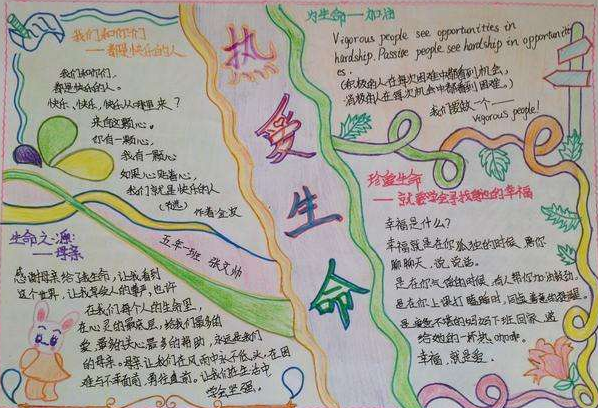 我们和你们
——都是快乐的人
我们和你们，
都是快乐的人。
快乐、快乐、快乐从哪里来？
来自这颗心。
你有一颗心
我有一颗心
如果心贴着心，
我们就是快乐的人
(节选)
作者:金波
热爱生命
为生命——加油
Vigorous people see opportunities in
hardship. Passive people see hardship in opportuniti
es.
(积极的人在每次困难中都看到机会，
消极的人在每次机会中都看到困难。)
我们要做一个——
vigorous people!
珍爱生命
——就要学会寻找身边的幸福
幸福是什么？
幸福就是在你孤独的时候，陪你
聊聊天，说说话。
是在你气馁的时候，有人帮你加油鼓劲。
是在你上课打瞌睡时，同桌善意的提醒。
是疲惫不堪的妈妈下班回家，递
给她的一杯热
幸福，就是爱．
生命之源：
——母亲
五年一班 张文帅
感谢母亲给了我生命，让我看到
这个世界，让我享受人的尊严，也许
在我们每个人的生命里，
在心灵的最深处，给我们最多的
爱、最多的关心最多的帮助，永远是我们
的母亲。母亲让我们在风雨中永不低头，在困
难与不幸面前，勇往直前。让我们在生活中
学会坚强。